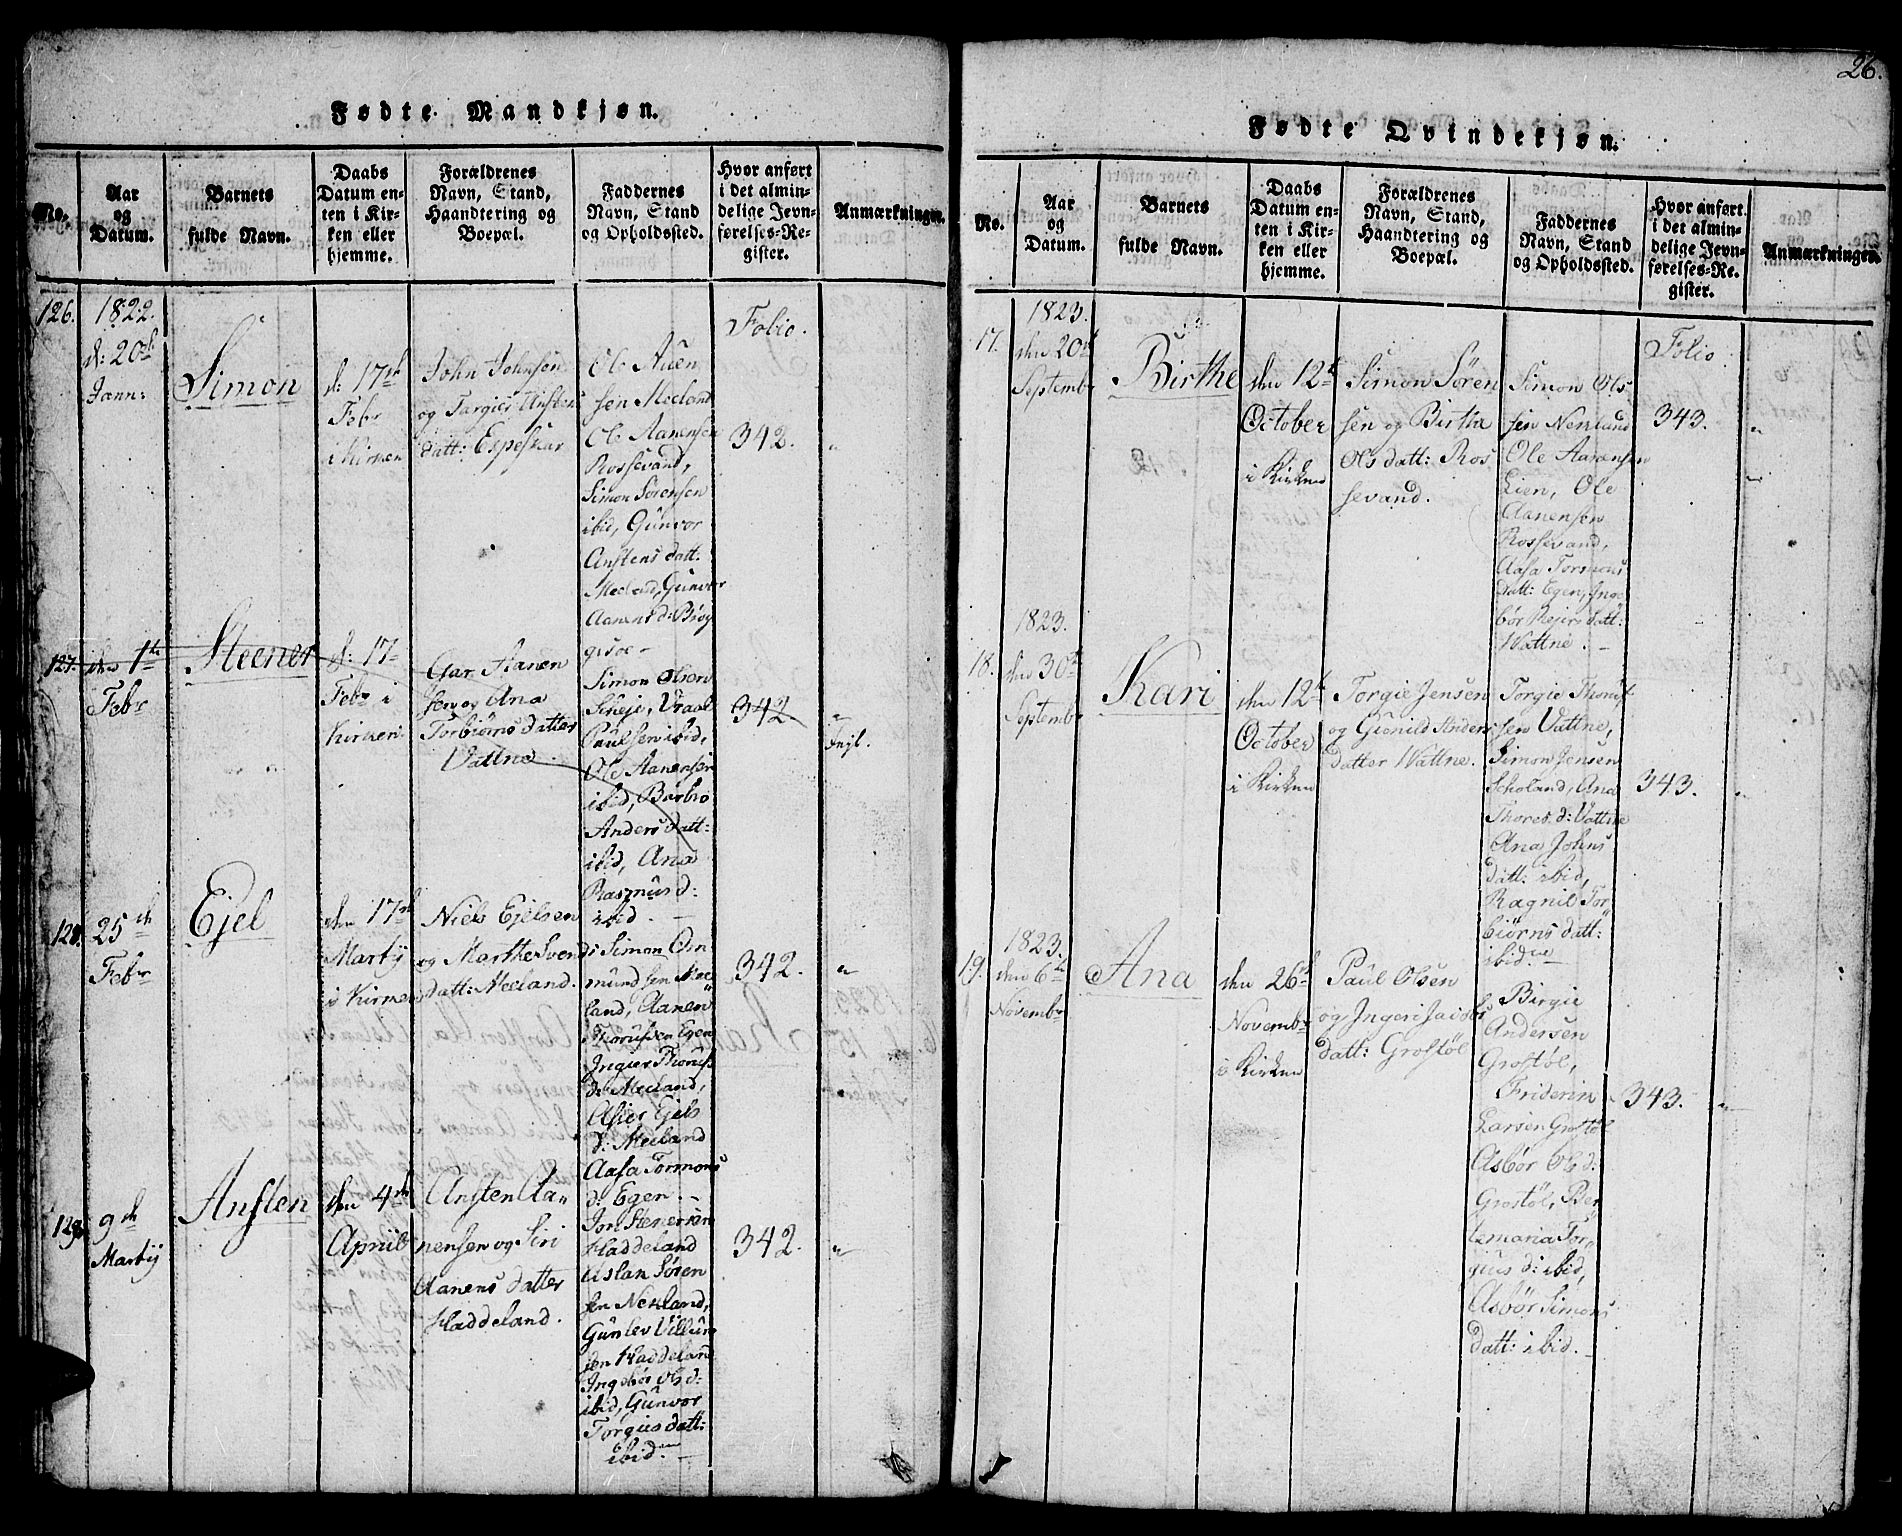 Fødte Mandkjøn.
No.
Aar
og
Datum.
Barnets
fulde Navn.
Daabs
Datum en-
ten i Kir-
ken eller
hjemme.
Forældrenes
Navn, Stand,
Haandtering og
Boepæl.
Faddernes
Navn, Stand
og Opholdssted.
Hvor anført
i det almin-
delige Jevn-
førelses-Re-
gister.
Anmærkninger.
126.
1822.
d: 20de
Jann:
Simon
d: 17de
Febr
i Kirken
John Johnsen
og Targier Ansten
datt: Espeskar
Ole Auen
sen Meeland
Ole Aanensen
Rossevand,
Simon Sørensen
ibid, Gunvor
Anstens datt.
Meeland, Gunvor
Aanens d: Brøg
gisoe -
Folio.
342.
"
127.
den 1te
Febr
Steener
d: 17
Febr i
Kirken
Gar Aanen
sen og Ana
Torbiørns datter
Vattne
Simon Olsen
Sineje, Vraal
Paulsen ibid,
Ole Aanensen
ibid, Barbro
Anders datt:
ibid, Ana
Rasmus d:
ibid. -
342
"
Fejl.
128.
25de
Febr
Ejel
den 17de
Martij
i Kirken
Niels Ejelsen
og Marthe Svends
datt: Meeland.
Simon Om
mundsen Mee
land, Aanen
Thorussen Egen
Ingier Thorus
d: Meeland,
Asier Ejels
d: Meeland
Aasa Tormons
d: Egen. -
342.
"
129.
9de
Martij
Ansten
den 4de
Apriil
Ansten Aa"
nensen og Siri
Aanens datter
Haddeland.
Jon Stenersen
Haddeland
Aslan Søren
sen Nekland,
Gunlev Villum
sen Haddeland
Ingebør Ols d:
ibid, Gunvor
Torgius datt:
ibid. -
342.
"
26.
Fødte Qvindekjøn.
No.
Aar
og
Datum.
Barnets
fulde Navn.
Daabs
Datum en-
ten i Kir-
ken eller
hjemme.
Forældrenes
Navn, Stand,
Haandtering og
Boepæl.
Faddernes
Navn, Stand
og Opholdssted.
Hvor anført
i det almin-
delige Jevn-
førelses-Re-
gister.
Anmærkninger.
17.
1823.
den 20de
Septembr
Birthe
den 12te
October
i Kirken
Simon Søren
sen og Birthe
Ols datt: Ros
sevand.
Simon Ols
sen Neslund
Ole Aanensen
Lien, Ole
Aanensen
Rossevand,
Aasa Tormons
datt: Egen, Inge
bør Rejers datt:
Wattne. -
Folio
343.
"
18.
1823.
den 30te
Septembr
Kari
den 12te
October
i Kirken
Torgie Jensen
og Gunild Anders
datter Wattne.
Torgie Thorus
sen Vattne,
Simon Jensen
Scholand, Ana
Thores d: Vattne
Ana Johns
datt: ibid,
Ragnil Tor
biørns datt:
ibid.
343.
"
19.
1823.
den 6te
Novembr
Ana
den 26de
Novembr
i Kirken
Paul Olsen
og Ingeri Jacobs
datt: Grostøl
Birgie
Andersen
Grostøl,
Friderin
Larsen Grostøl
Asbør Ols d:
Grostøl, Ber
temaria Tor"
gius d: ibid,
Asbør Simons
datt: ibid. -
343.
"